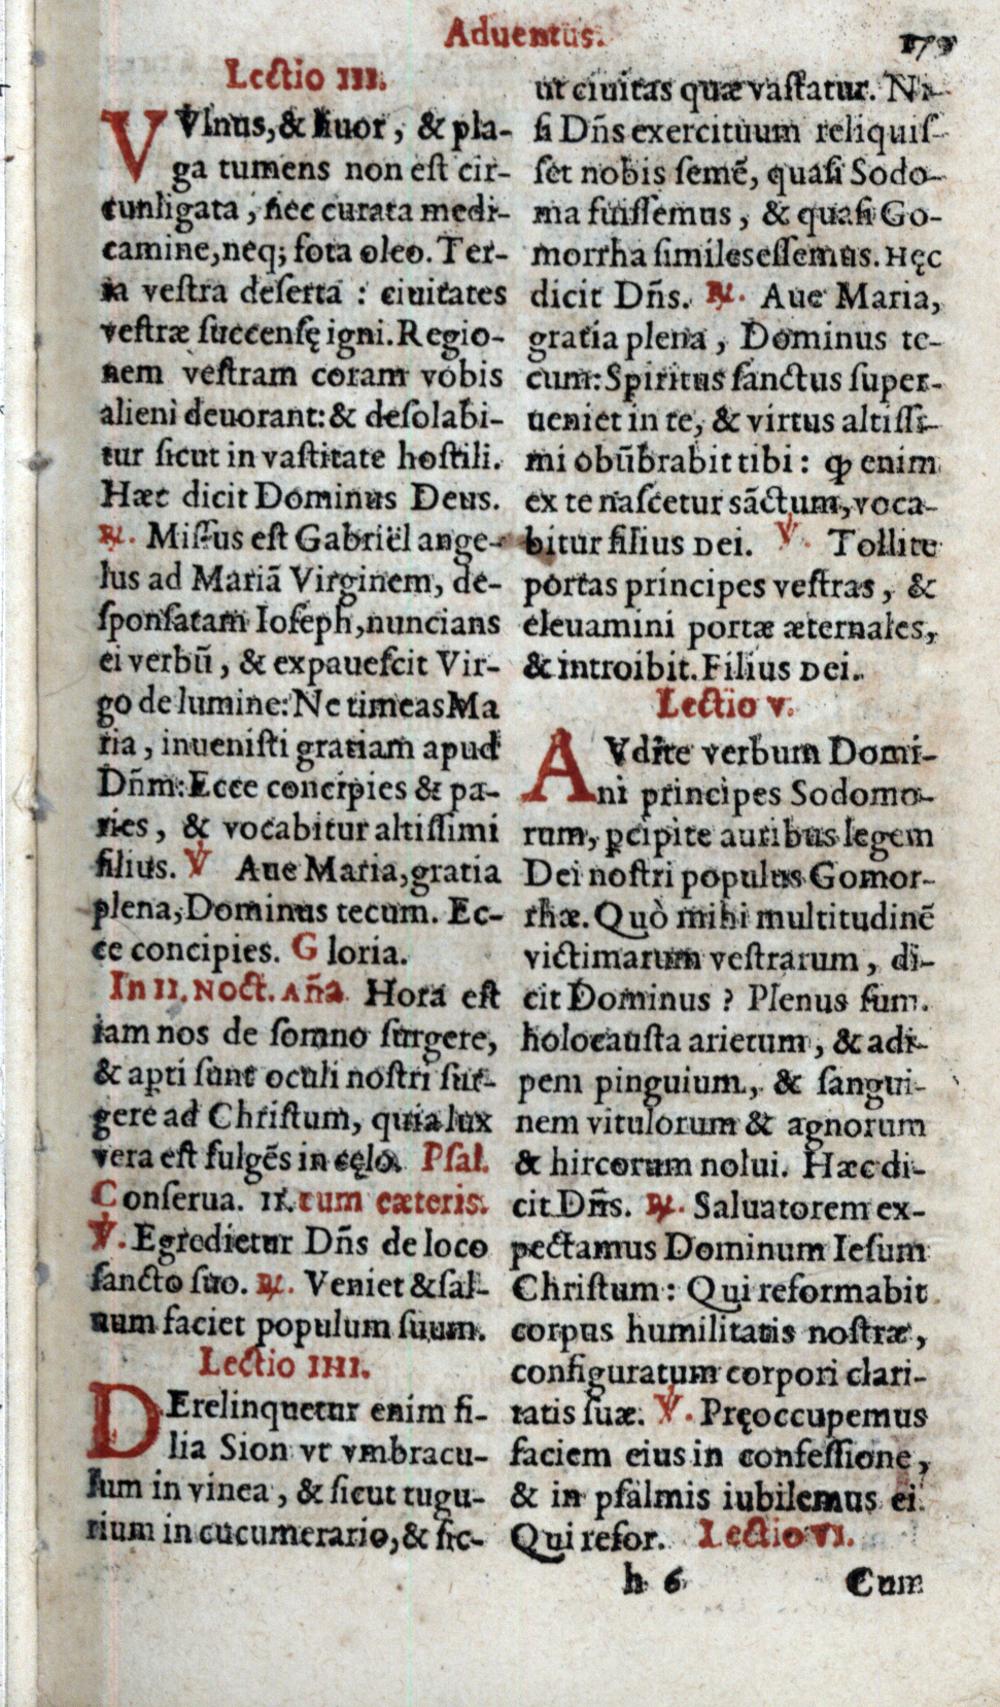 Aduentus.
Lectio III.
VVlnus, & liuor, & pla-
ga tumens non est cir-
cunligata, nec curata medi-
camine, neq; fota oleo. Ter-
ra vestra deserta : ciuitates
vestræ succensę igni. Regio-
nem vestram coram vobis
alieni deuorant: & desolabi-
tur sicut in vastitate hostili.
Hæc dicit Dominus Deus.
℟. Missus est Gabriël ange-
lus ad Mariã Virginem, de-
sponsatam Ioseph, nuncians
ei verbũ, & expauescit Vir-
go de lumine: Ne timeas Ma
ria, inuenisti gratiam apud
Dñm: Ecce concipies & pa-
ries, & vocabitur altissimi
filius. ℣ Aue Maria, gratia
plena, Dominus tecum. Ec-
ce concipies. Gloria.
In II. Noct. Aña Hora est
iam nos de somno surgere,
& apti sunt oculi nostri sur-
gere ad Christum, quia lux
vera est fulgẽs in cęlo. Psal.
Conserua. II. cum cæteris.
℣. Egredietur Dñs de loco
sancto suo. ℟. Veniet & sal-
uum faciet populum suum.
Lectio IIII.
DErelinquetur enim fi-
lia Sion vt vmbracu-
lum in vinea, & sicut tugu-
rium in cucumerario, & sic-
ut ciuitas quæ vastatur. Ni-
si Dñs exercituum reliquis-
set nobis semẽ, quasi Sodo-
ma fuissemus, & quasi Go-
morrha similes essemus. Hęc
dicit Dñs. ℟. Aue Maria,
gratia plena, Dominus te-
cum: Spiritus sanctus super-
ueniet in te, & virtus altissi-
mi obũbrabit tibi: ꝙ enim
ex te nascetur sãctum, voca-
bitur filius Dei. ℣. Tollite
portas principes vestras, &
eleuamini portæ æternales,
& introibit. Filius Dei.
Lectio V.
AVdite verbum Domi-
ni principes Sodomo-
rum, ꝑcipite auribus legem
Dei nostri populus Gomor-
rhæ. Quò mihi multitudinẽ
victimarum vestrarum, di-
cit Dominus ? Plenus sum.
holocausta arietum, & adi-
pem pinguium, & sangui-
nem vitulorum & agnorum
& hircorum nolui. Hæc di-
cit Dñs. ℟. Saluatorem ex-
pectamus Dominum Iesum
Christum: Qui reformabit
corpus humilitatis nostræ,
configuratum corpori clari-
tatis suæ. ℣. Pręoccupemus
faciem eius in confessione,
& in psalmis iubilemus ei.
Qui refor. Lectio VI.
h 6 Cum